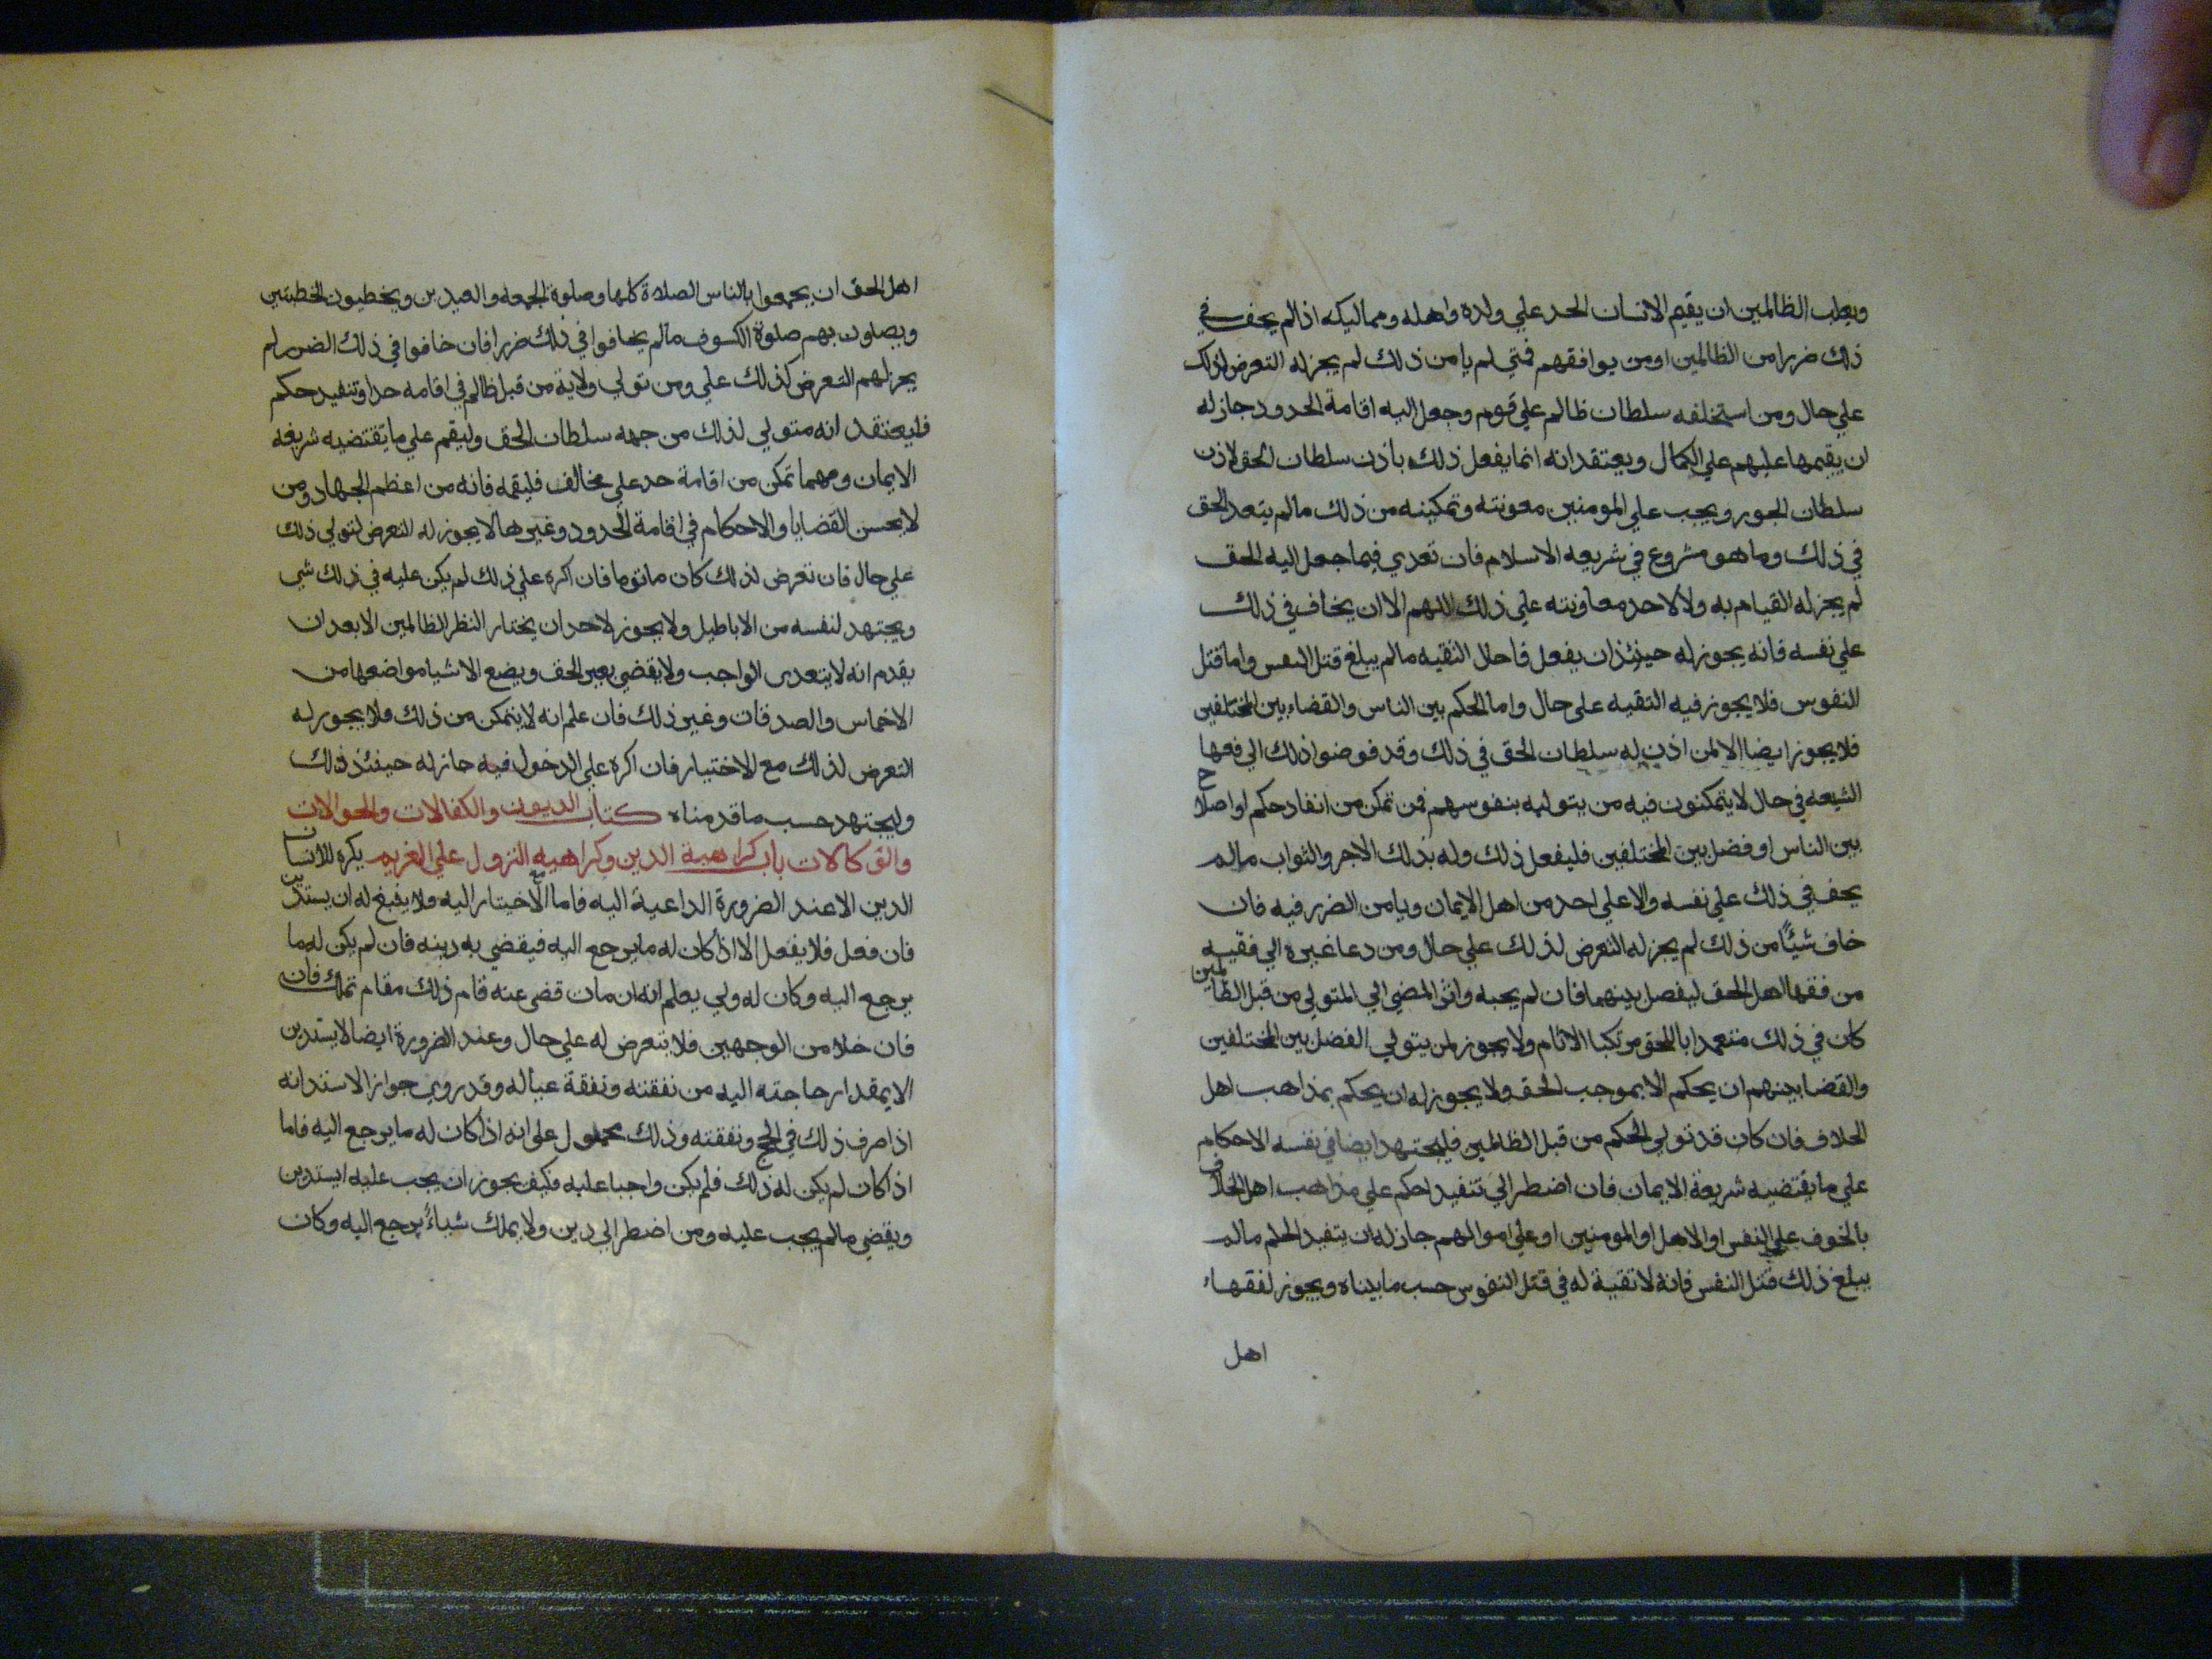 وبعلب الظالمين ان يقيم الانسان الحد علي ولده واهله ومماليكه اذا لم يخف في
ذلك ضررا من الظالمين او من يوافقهم فمتي لم يامن ذلك لم يجز له التعرض لذلك
علي حال ومن استخلفه سلطان ظالم علي قوم وجعل اليه اقامة الحدود جاز له
ان يقيمها عليهم علي الكمال ويعتقد انه انما يفعل ذلك باذن سلطان الحق لا ذن
سلطان الجور ويجب علي المومنين معونته وتمكينه من ذلك مالم يتعد الحق
في ذلك وما هو مشروع في شريعه الاسلام فان تعدي فيما جعل اليه الحق
لم يجز له القيام به ولا لاحد معاونته علي ذلك اللهم الا ان يخاف في ذلك
علي نفسه فانه يجوز له حينئذ ان يفعل فاحال التقيه مالم يبلغ قتل النفس واما قتل
النفوس فلا يجوز فيه التقيه على حال واما الحكم بين الناس والقضاء بين المختلفين
فلا يجوز ايضا الا لمن اذن له سلطان الحق في ذلك وقد فوضوا ذلك الي فقها
الشيعه في حال لا يتمكنون فيه من يتوليه بنفوسهم فمن تمكن من انفاد حكم او اصلاح
بين الناس او فضل بين المختلفين فليفعل ذلك وله بذلك الاجر والثواب مالم
يخف في ذلك علي نفسه والا علي احد من اهل الايمان ويامن الضرر فيه فان
خاف شيئًا من ذلك لم يجز له التعرض لذلك علي حال ومن دعا غيره الي فقيه
من فقها اهل الحق ليفصل بينهما فان لم يجبه واثر المضي الي المتولي من قبل الظالمين
كان في ذلك متعمدا باللحق مرتكبا الاثام ولا يجوز لمن يتولي الفضل بين المختلفين
والقضا بينهم ان يحكم الا بموجب الحق ولا يجوز له ان يحكم بمذاهب اهل
الخلاف فان كان قد تولي الحكم من قبل الظالمين فليجتهد ايضا في نفسه الاحكام
علي ما يقتضيه شريعة الايمان فان اضطر الي تنفيذ احكم علي مذاهب اهل الخلاف
بالخوف علي النفس او الاهل او المومنين او علي اموالهم جاز له ان يتفيد الحلم مالم
يبلغ ذلك قتل النفس فانه لا تقية له في قتل النفوس حسب ما بيناه ويجوز لفقهاء
اهل
اهل الحق ان يجمعوا بالناس الصلاة كلها وصلوة الجمعه والعيدين ويخطبون الخطبتين
ويصلون بهم صلوة الكسوف مالم يخافوا في ذلك ضررا فان خافوا في ذلك الضرر لم
يجز لهم التعرض لذلك علي ومن تولي ولاية من قبل ظالم في اقامه حد او تنفيد حكم
فليعتقد انه متولي لذلك من جهه سلطان الحق وليقم علي ما يقتضيه شريعه
الايمان ومهما تمكن من اقامة حد علي مخالف فليقمه فانه من اعظم الجهاد ومن
لا يحسن القضايا والاحكام في اقامة الحدود وغيرها لا يجوز له التعرض لتولي ذلك
علي حال فان تعرض لذلك كان ماثوما فان اكره علي ذلك لم يكن عليه في ذلك شي
ويجتهد لنفسه من الاباطيل ولا يجوز لاحد ان يختار النظر الظالمين الا بعد ان
يقدم انه لا يتعدى الواجب ولا يقضي بغير الحق ويضع الاشيا مواضعها من
الاخماس والصدقات وغير ذلك فان علم انه لا يتمكن من ذلك فلا يجوز له
التعرض لذلك مع الاختيار فان اكره علي الدخول فيه جاز له حينئذ ذلك
وليجتهد حسب ما قدمناه كتاب الديون والكفالات والحوالات
والوكالات باب كراهية الدين وكراهيه النزول علي الغريم يكره للانسان
الدين الا عند الضرورة الداعية اليه فاما مع الاختيار اليه ولا ينبغ له ان يستدين
فان فعل فلا يفعل الا اذا كان له ما يرجع اليه فيقضي به دينه فان لم يكن له ما
يرجع اليه وكان له ولي يعلم انه ان مات قضى عنه قام ذلك مقام تملك فان
فان خلا من الوجهين فلا يتعرض له علي حال وعند الضرورة ايضا لا يستدين
الا بمقدار حاجته اليه من نفقته ونفقة عياله وقد روي جواز الاستدانه
اذا صرف ذلك في الحج ونفقته وذلك محمول على انه اذا كان له ما يرجع اليه فاما
اذا كان لم يكن له ذلك فلم يكن واجبا عليه فكيف يجوز ان يجب عليه ايستدين
ويقضي مالم يجب عليه ومن اضطر الي دين ولا يملك شياءً يرجع اليه وكان